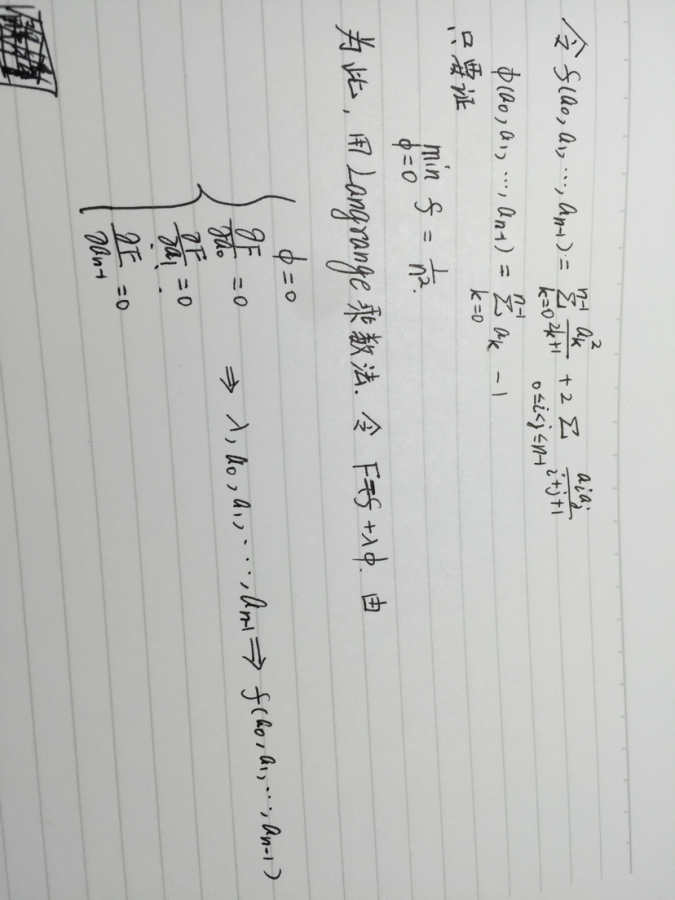 令 f(a₀, a₁, ⋯, aₙ₋₁) = ∑_{k=0}^{n-1} a_k²/(2k+1) + 2 ∑_{0≤i<j≤n-1} a_i a_j/(i+j+1)
φ(a₀, a₁, ⋯, aₙ₋₁) = ∑_{k=0}^{n-1} a_k - 1
只要证
min_{φ=0} f = 1/n².
为此, 用Langrange乘数法. 令 F=f+λφ. 由
φ=0
∂F/∂a₀ = 0
∂F/∂a₁ = 0
⋮
∂F/∂aₙ₋₁ = 0
⇒ λ, a₀, a₁, ⋯, aₙ₋₁ ⇒ f(a₀, a₁, ⋯, aₙ₋₁)